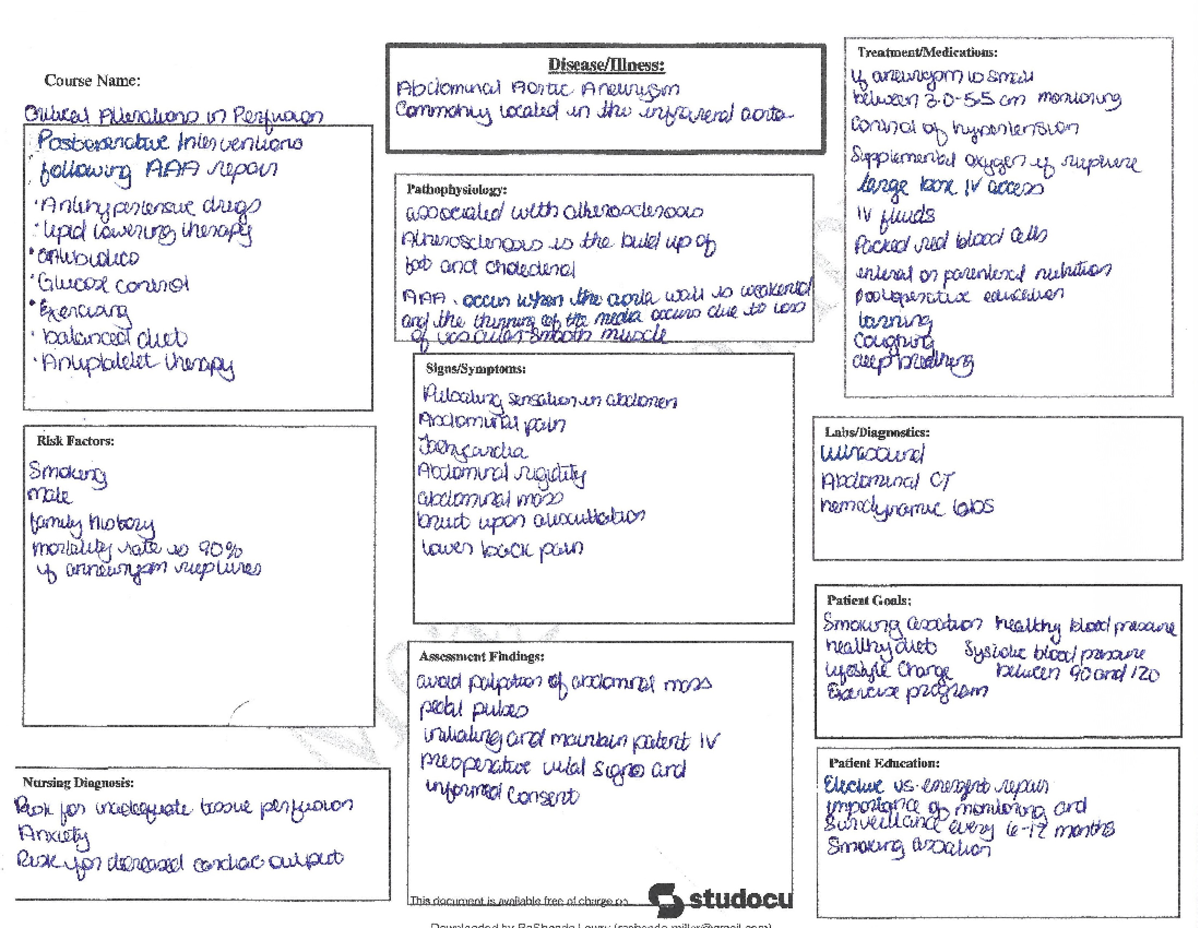 Course Name:
Critical Alterations in Perfusion
Postoperative Interventions
following AAA repair
· Antihypertensive drugs
· Lipid lowering therapy
· antibiotics
· Glucose control
· Exercising
· balanced diet
· Antiplatelet therapy
Risk Factors:
Smoking
male
family history
mortality rate is 90%
if anneurysm ruptures
Nursing Diagnosis:
Risk for inadequate tissue perfusion
Anxiety
Risk for decreased cardiac output
Disease/Illness:
Abdominal Aortic Aneurysm
Commonly located in the infrarenal aorta
Pathophysiology:
associated with atherosclerosis
Atherosclerosis is the build up of
fat and cholesterol
AAA · occur when the aorta wall is weakened
and the thinning of the media occurs due to loss
of vascular smooth muscle
Signs/Symptoms:
Pulsating sensation in abdomen
Abdominal pain
Tachycardia
Abdominal rigidity
abdominal mass
bruit upon auscultation
lower back pain
Assessment Findings:
avoid palpation of abdominal mass
pedal pulses
initiating and maintain patent IV
preoperative vital signs and
informed consent
Treatment/Medications:
if aneurysm is small
between 3.0-5.5 cm monitoring
Control of hypertension
Supplemental oxygen if rupture
large bore IV access
IV fluids
Packed red blood cells
enteral or parenteral nutrition
postoperative education
turning
Coughing
deep breathing
Labs/Diagnostics:
Ultrasound
Abdominal CT
hemodynamic labs
Patient Goals:
Smoking cessation healthy blood pressure
healthy diet Systolic blood pressure
Lifestyle Change between 90 and 120
Exercise program
Patient Education:
Elective vs. emergent repair
importance of monitoring and
Surveillance every 6-12 months
Smoking cessation
This document is available free of charge on
studocu